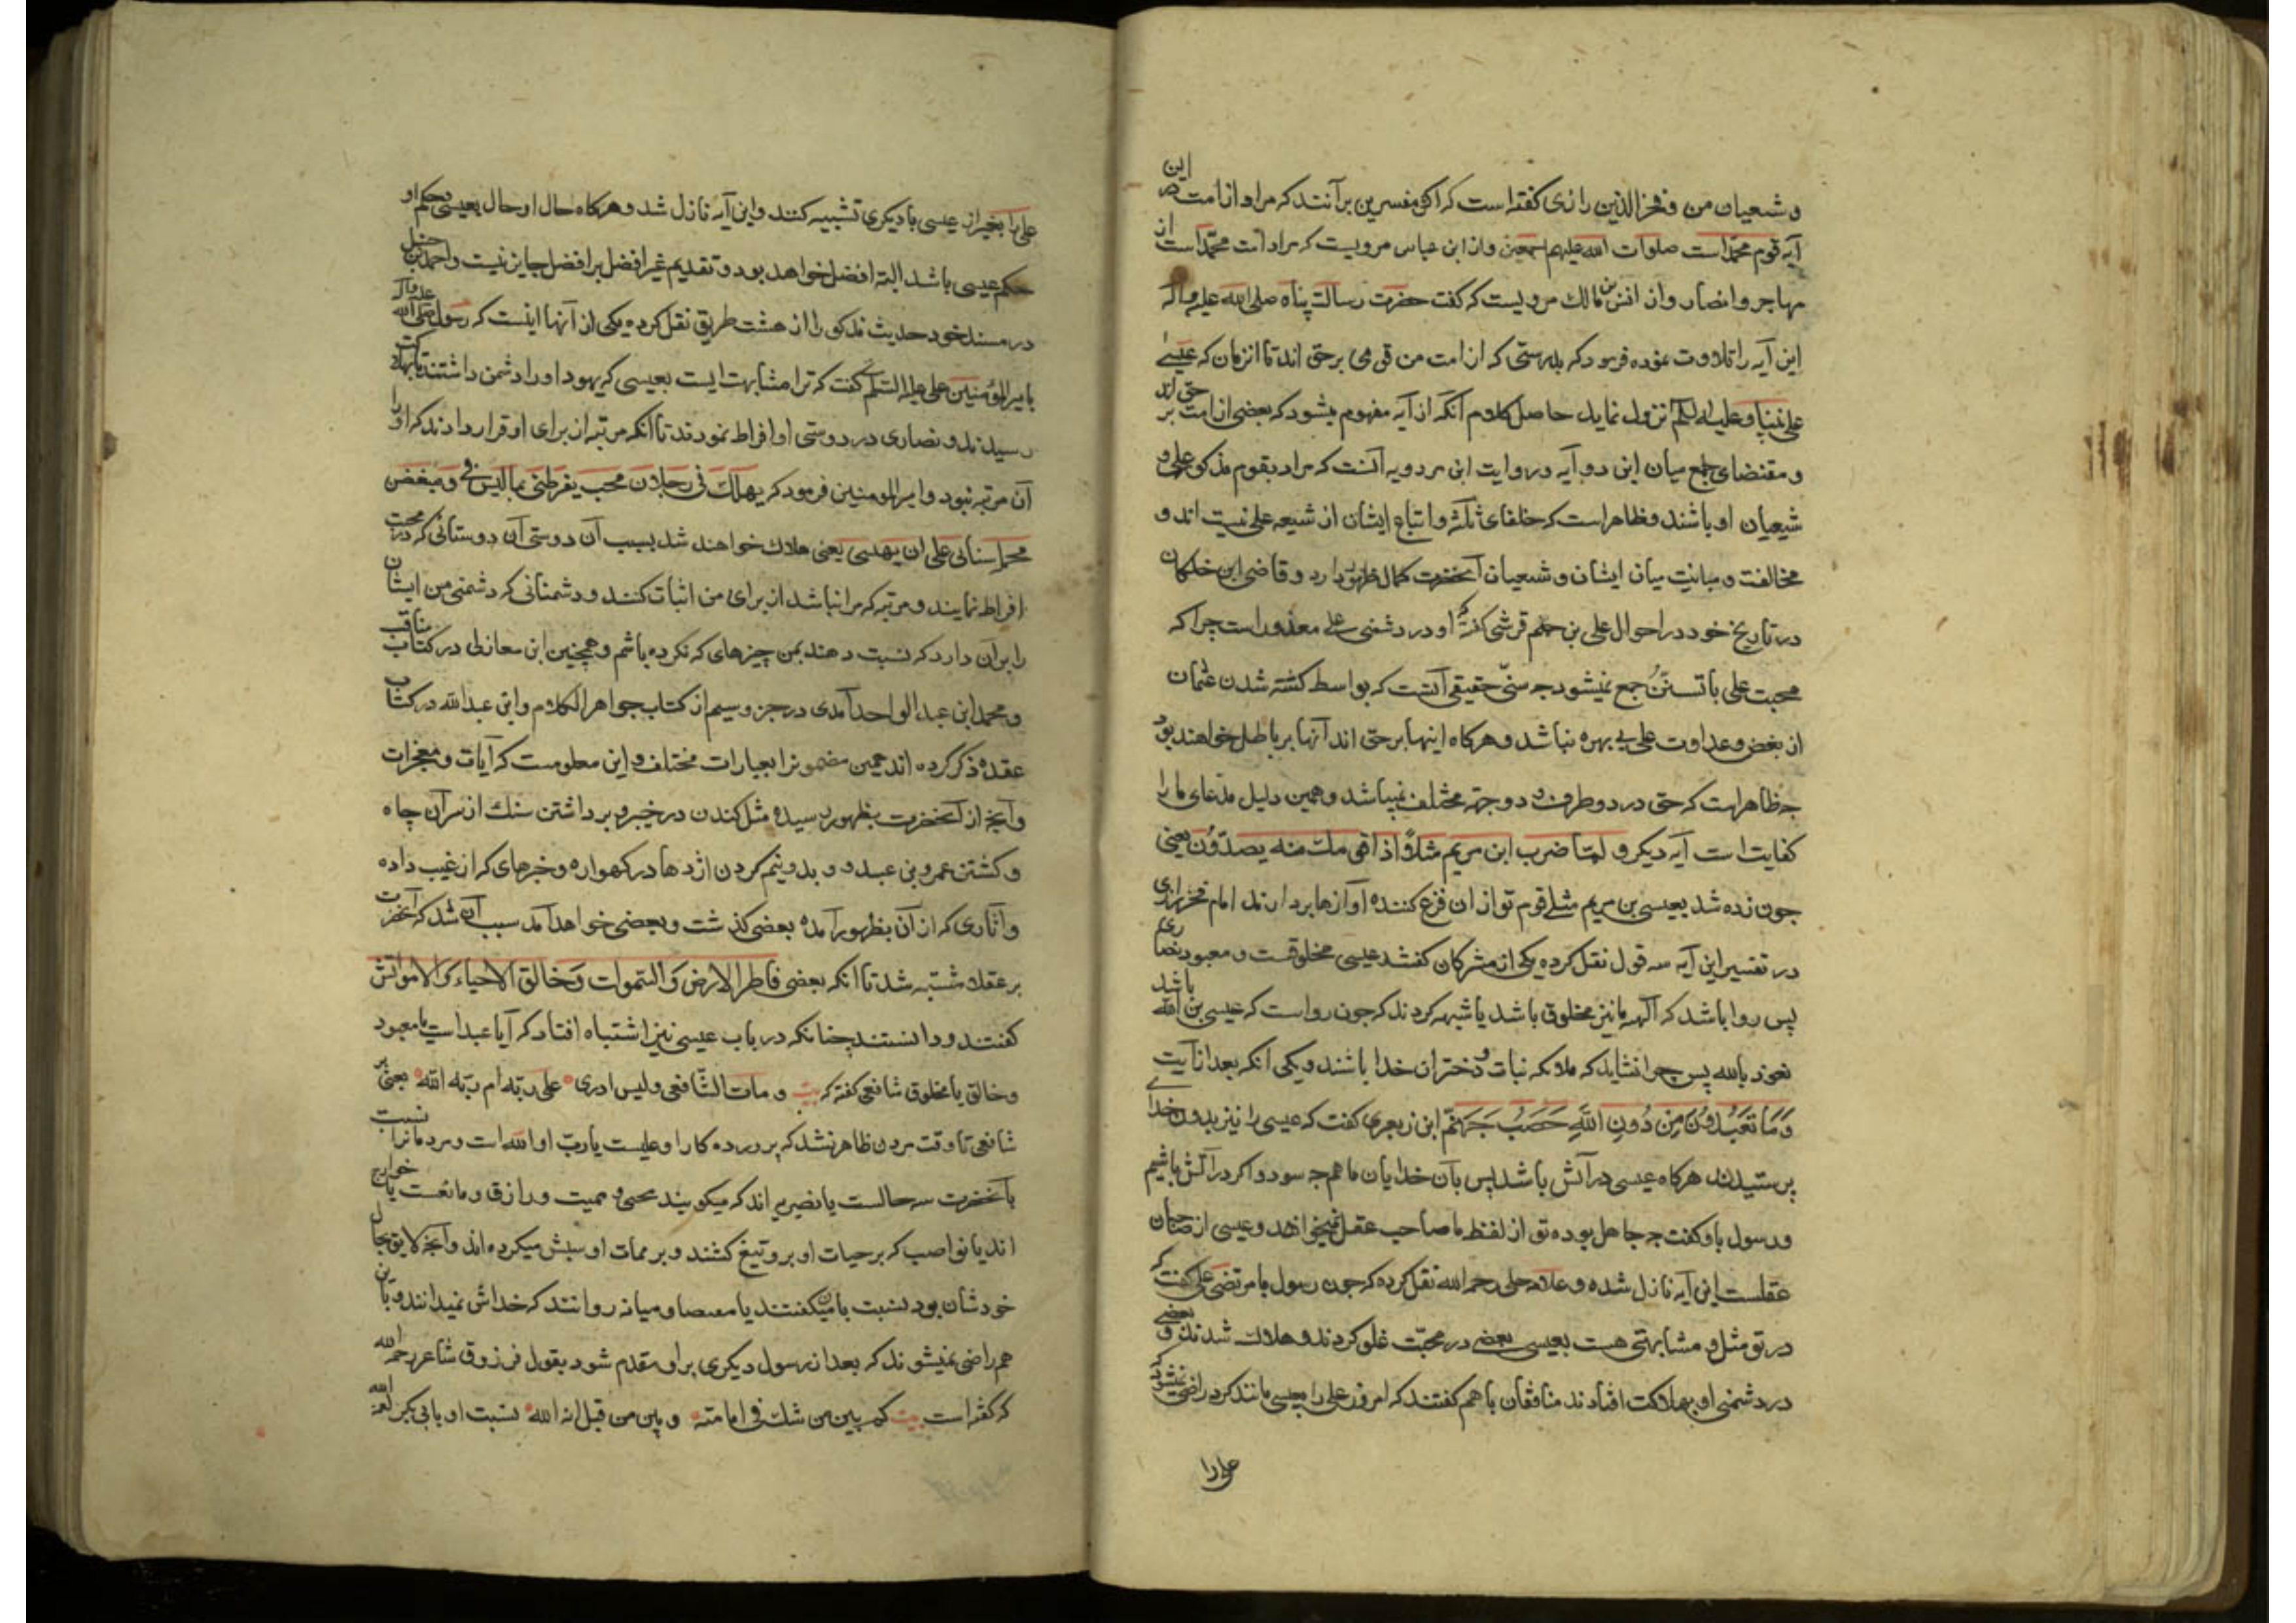 و شیعیان من و فخرالدین رازی کفته است که اکثر مفسرین برآنند که مراد از امت در این
آیه قوم محمّد است صلوات الله علیهم اجمعین و از ابن عباس مرویست که مراد امت محمّد است از
مهاجر و انصار و از انس بن مالک مرویست که کفت حضرت رسالت پناه صلی الله علیه و آله
این آیه را تلاوت نموده فرمود که بدرستی که از امت من قومی برحق اند تا انزمان که عیسی
علی نبینا و علیه السلم نزول نماید حاصل کلام آنکه از آیه مفهوم میشود که بعضی از امت بر حق اند
و مقتضای جمع میان این دو آیه و روایت ابن مردویه آنست که مراد بقوم مذکور علی و
شیعیان او باشند و ظاهر است که خلفای ثلثه و اتباع ایشان از شیعه علی نیست اند و
مخالفت و مباینت میان ایشان و شیعیان آنحضرت کمال ظهور دارد و قاضی ابن خلکان
در تاریخ خود در احوال علی بن جهم قرشی کفته که او در دشمنی علی معذور است چرا که
محبت علی با تسنّن جمع نمیشود چه سنّی حقیقی آنست که بواسط کشته شدن عثمان
از بغض و عداوت علی بی بهره نباشد و هرکاه اینها برحق اند آنها بر باطل خواهند بود
چه ظاهر است که حق در دو طرف و دو جهة مختلف نمیباشد و همین دلیل مدّعای ما را
کفایت است آیه دیکر و لمّا ضرب ابن مریم مثلاً اذا قومک منه یصدّون یعنی
چون زده شد بعیسی بن مریم مثلی قوم تو از ان فزع کننده آوازها بردارند امام فخر رازی
در تفسیر این آیه سه قول نقل کرده یکی از مشرکان کفتند عیسی مخلوقست و معبود نصاری
پس روا باشد که آلهه ما نیز مخلوق باشد یا شبهه کردند که چون رواست که عیسی بن الله باشد
نعوذ بالله پس چرا نشاید که ملائکه نبات و دختران خدا باشند و یکی آنکه بعد از آیت
وَمَا تَعبُدُونَ مِن دُونِ اللّهِ حَصَبُ جَهَنّم ابن زبعری کفت که عیسی را نیز بدون خدای
پرستیدند هرکاه عیسی در آتش باشد پس بآن خدایان ما هم چه سود و اکر در آتش باشیم
و رسول باو کفت چه جاهل بوده تو از لفظ ما صاحب عقل نمیخواهد و عیسی از صاحبان
عقلست این آیه نازل شده و علامه حلی رحمه الله نقل کرده که چون رسول با مرتضی علی کفت که
در تو مثل و مشابهتی هست بعیسی بعضی در محبّت غلو کردند و هلاک شدند و بعضی
در دشمنی او بهلاکت افتادند منافقان با هم کفتند که امروز علی را بعیسی مانند کرد راضی نمیشود که
علی را
علی را بغیر از عیسی با دیکری تشبیه کنند و این آیه نازل شد و هرکاه حال او حال عیسی و حکم او
حکم عیسی باشد البته افضل خواهد بود و تقدیم غیر افضل بر افضل جایز نیست و احمد بن حنبل
در مسند خود حدیث مذکور را از هشت طریق نقل کرده یکی از آنها اینست که رسول صلی الله علیه و آله
بامیر المؤمنین علی علیه السلم کفت که ترا مشابهت ایست بعیسی که یهود او را دشمن داشتند تا بهلاکت
رسیدند و نصاری در دوستی او افراط نمودند تا آنکه مرتبه از برای او قرار دادند که او را
آن مرتبه نبود و امیر المومنین فرمود که یهلک فی رجلان محب یفرطنی بما لیس فیّ و مبغض
یحمله سنانی علی ان یبهتنی یعنی هلاک خواهند شد بسبب آن دوستی آن دوستانی که در محبت
افراط نمایند و مرتبه که مرا نباشد از برای من اثبات کنند و دشمنانی که دشمنی من ایشان
را بر آن دارد که نسبت دهند بمن چیزهای که نکرده باشم و همچنین ابن مغازلی در کتاب مناقب
و محمد ابن عبد الواحد آمدی در جزو سیم از کتاب جواهر الکلام و ابن عبد الله در کتاب
عقده ذکر کرده اند همین مضمونرا بعبارات مختلف و این معلومست که آیات و معجزات
و آنچه از آنحضرت بظهور رسیده مثل کندن در خیبر و برداشتن سنک از سر آن چاه
و کشتن عمرو بن عبدود و بدو نیم کردن اژدها در کهواره و خبرهای که از غیب داده
و آثاری که از آن بظهور آمده بعضی کذشت و بعضی خواهد آمد سبب آن شد که آنحضرت
بر عقلا مشتبه شد تا آنکه بعضی فاطر الارض و السّموات و خالق الاحیاء و الامواتش
کفتند و دانستند چنانکه در باب عیسی نیز اشتباه افتاد که آیا عبد است یا معبود
و خالق یا مخلوق شافعی کفته که بیت و مات الشّافعی ولیس ادری علی ربّه ام ربّه اللّه یعنی بر
شافعی تا وقت مردن ظاهر نشد که پرورده کار او علیست یا ربّ او الله است و مردمانرا نسبت
بآنحضرت سه حالست یا نصیریه اند که میکویند محیی و ممیت و رازق و مانعست یا خوارج
اند یا نواصب که بر حیات او برو تیغ کشند و بر ممات او سبّش میکرده اند و آنچه لایق بحال
خودشان بود نسبت بآن میکفتند یا معتصا و میانه روانند که خداش نمیدانند و بآن
هم راضی نمیشوند که بعد از رسول دیکری بر او مقدم شود بقول فرزوق شاعر رحمه الله
که کفته است بیت کم بین من شک فی امامته و بین من قیل انه الله نسبت او بابی بکر لعنه الله